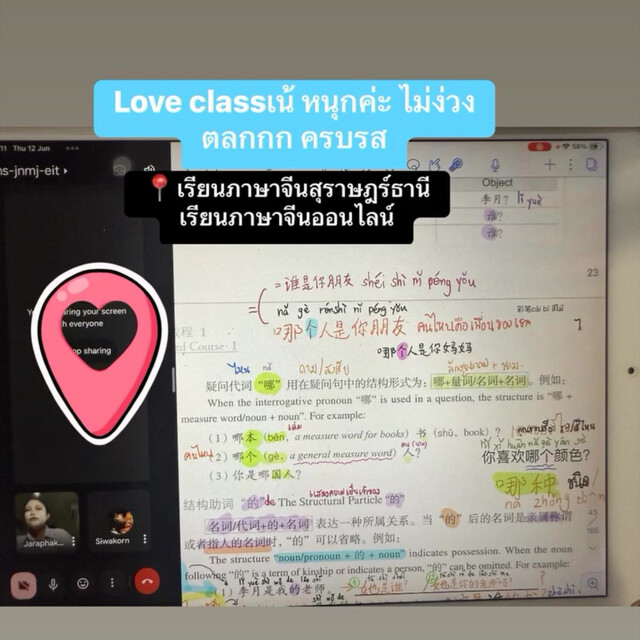 Love classเน้ หนุกค่ะ ไม่ง่วง
ตลกกก ครบรส
📍 เรียนภาษาจีนสุราษฎร์ธานี
เรียนภาษาจีนออนไลน์
11 Thu 12 Jun
58%
ns-jnmj-eit
Object
李月？ lǐ yuè
谁？
谁？
23
= 谁是你朋友 shéi shì nǐ péng yǒu
nǎ gè rén shì nǐ péng yǒu
哪个人是你朋友 คนไหนคือเพื่อนของเธอ
哪个人是你妈妈
彩笔 cǎi bǐ สีไม้
教程 1
ed Course · 1
ring your screen
h everyone
op sharing
ไหน nǎ
疑问代词“哪”用在疑问句中的结构形式为：哪+量词/名词+名词。例如：
When the interrogative pronoun “哪” is used in a question, the structure is “哪 +
measure word/noun + noun”. For example:
（1）哪本（běn, a measure word for books）书（shū, book）？
（2）哪个（gè, a general measure word）人？
คนไหน
（3）你是哪国人？
你喜欢哪个颜色？
哪种 ชนิด
nǎ zhǒng
结构助词 “的” de The Structural Particle “的”
名词/代词+的+名词 表达一种所属关系。当 “的” 后的名词是亲属称谓
或者指人的名词时，“的” 可以省略。例如：
The structure “noun/pronoun + 的 + noun” indicates possession. When the noun
following “的” is a term of kinship or indicates a person, “的” can be omitted. For example:
（1）李月是我的老师
43
Jaraphak...
Siwakorn